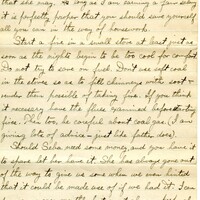 that see way. As long as I am earning a fair salary
it is perfectly proper that you should save yourself
all you can in the way of housework.
Start a fire in a small stove at least just as
soon as the nights begin to be too cool for comfort.
Do not try to save on fuel. Don't use soft coal
in the stove, so as to fill chimneys with soot &
under then possible of taking fire. If you think
it necessary have the flues examined before starting
fires. Then too, be careful about coal gas. (I am
giving lots of advice - just like father does).
Should Seba need some money, and you have it
to spare let her have it. She has always gone out
of the way to give us some when we man hinted
that it could be made use of if we had it. I can